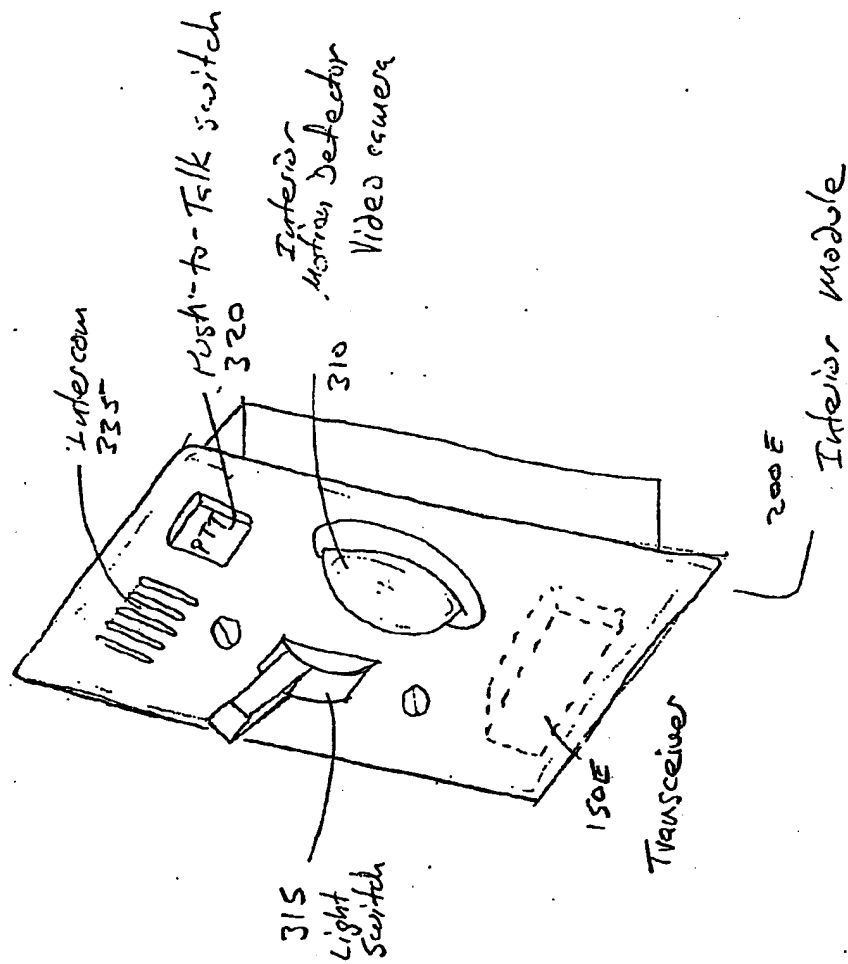 Intercom
335
Push-to-Talk switch
320
PTT
Interior
Motion Detector
Video camera
310
315
Light
Switch
150E
Transceiver
200E
Interior module